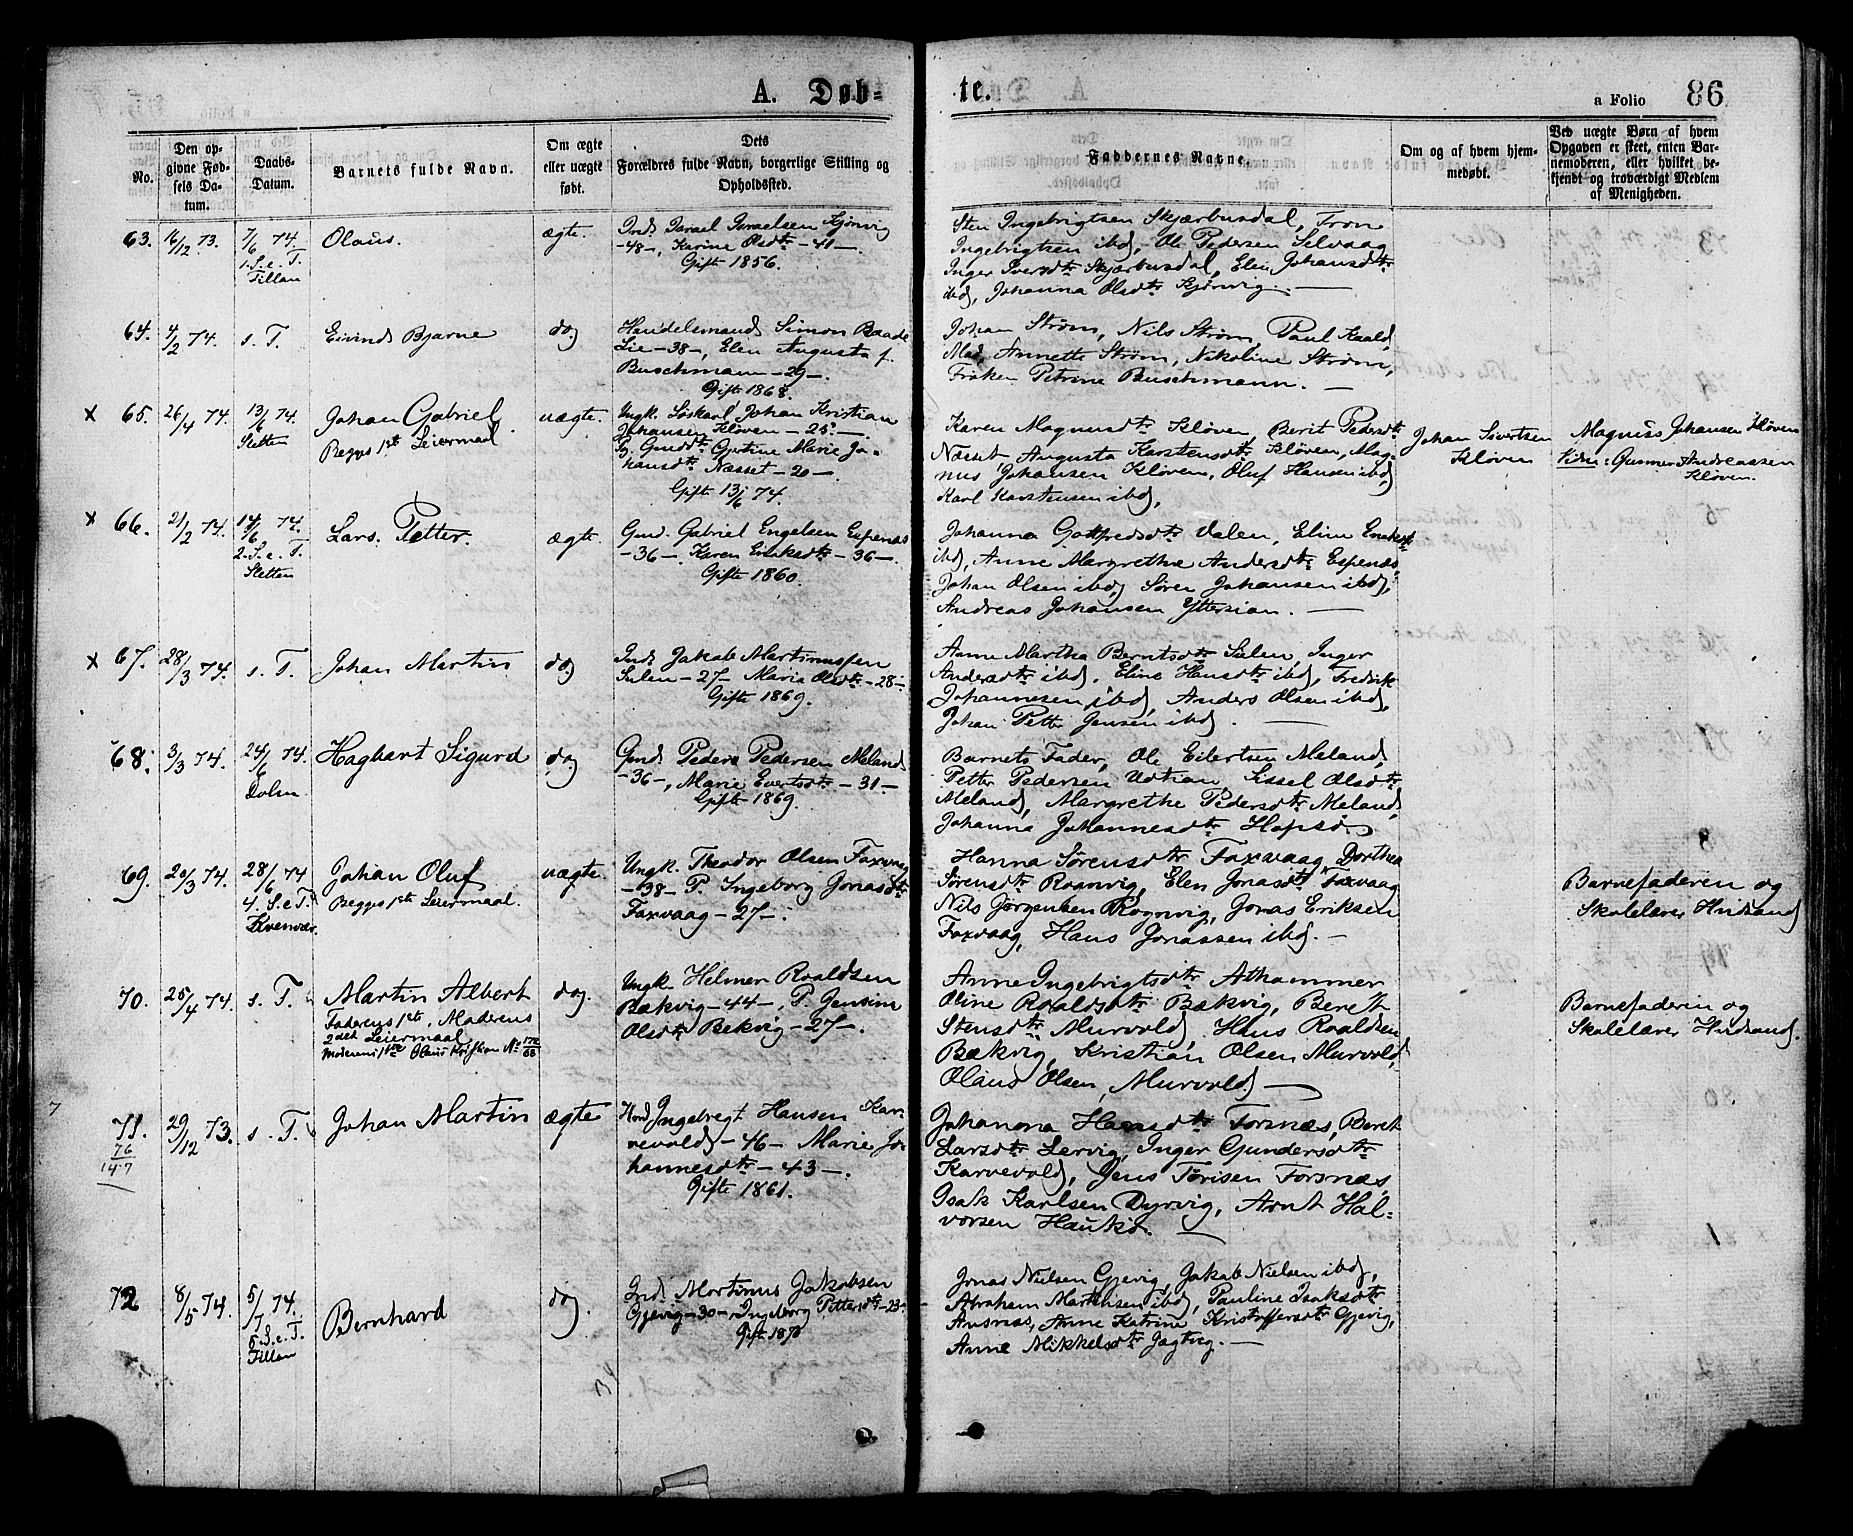 A. Døb-
te.
a Folio 86
No.
Den op-
givne Fød-
sels Da-
tum.
Daabs-
Datum.
Barnets fulde Navn.
Om ægte
eller uægte
født.
Dets
Forældres fulde Navn, borgerlige Stilling og
Opholdssted.
Faddernes Navne.
Om og af hvem hjem-
medøbt.
Ved uægte Børn af hvem
Opgaven er skeet, enten Bar-
nemoderen, eller hvilket be-
kjendt og troværdigt Medlem
af Menigheden.
63. 16/12 73.
7/6 74.
1.S.e.T.
Fillan
Olaus.
ægte.
Inds Israel Israelsen Kjønvig
-48-, Karine Olsdtr -41-
Gifte 1856.
Sten Ingebrigtsen Skjærbusdal, Tron
Ingebrigtsen ibd, Ole Pedersen Selvaag
Inger Iversdtr Skjærbusdal, Elen Johansdtr
ibd, Johanna Olsdtr Kjønvig. -
64. 4/2 74. s. T.
Eivind Bjarne
do,
Handelsmand Simon Baade
Lie -38-, Elen Augusta f.
Buschmann -29-.
Gifte 1868.
Johan Strøm, Nils Strøm, Paul Kaald,
Mad. Annette Strøm, Nikoline Strøm,
Frøken Petrine Buschmann. -
x 65. 26/4 74.
13/6 74.
Sletten
Johan Gabriel
Begges 1ste Leiermaal
uægte.
Ungk. Søskarl Johan Kristian
Johansen Kløven -25-.
Pg. Gmdtr Gjertine Marie Jo-
hansdtr Næsset -20-
Gifte 13/6 74.
Karen Magnusdtr Kløven, Berit Pedersdtr
Næsset, Augusta Karstensdtr Kløven, Mag-
nus Johansen Kløven, Oluf Hansen ibd,
Karl Karstensen ibd,
Johan Sivertsen
Kløven
Magnus Johansen Kløven
Vidn: Gunner Andreassen
Kløven.
x 66. 21/2 74.
14/6 74.
2.S.e.T.
Sletten
Lars Petter.
ægte.
Gmd. Gabriel Engelsen Espenæs
-36-. Karen Eriksdtr -36-
Gifte 1860.
Johanna Gottfredsdtr Valen, Eline
ibd, Anne Margrethe Andersdtr Espenæs,
Johan Olsen ibd, Søren Johansen ibd,
Andreas Johansen Yttersian. -
x 67. 28/3 74. s. T.
Johan Martin
do,
Ind. Jakob Martinussen
Sulen -27- Maria Olsdtr -28-
Gifte 1869.
Anne Martha Berntsdtr Sulen, Inger
Andersdtr ibd, Eline Hansdtr ibd, Fredrik
Johannesen, ibd, Anders Olsen ibd,
Johan Petter Jensen ibd. -
68. 3/3 74.
24/6 74.
Dolm
Hagbart Sigurd
do,
Gmd Peder Pedersen Meland
-36-, Marie Evertsdtr -31-
Gifte 1869.
Barnets Fader, Ole Eilertsen Meland,
Petter Pedersen Udtian Sissel Olsdtr
Meland, Margrethe Pedersdtr Meland,
Johanna Johannesdtr Hopsø
69. 20/3 74.
28/6 74
4.S.e.T.
Kvenvær.
Johan Oluf
Begges 1ste Leiermaal.
uægte.
Ungk. Theodor Olsen Faxvaag
-38- P. Ingeborg Jonasdtr
Faxvaag -27-.
Hanna Sørensdtr Faxvaag, Dorthea
Sørensdtr Rognvig, Elen Jonasdtr Faxvaag
Nils Jørgensen Rognvig, Jonas Eriksen
Faxvaag, Hans Jonassen ibd. -
Barnefaderen og
Skolelærer Hudsand
70. 25/4 74. s. T.
Martin Albert
Faderens 1ste, Moderens
2det Leiermaal
Moderens 1ste Olaus Kristian No 172/68
do.
Ungk. Helmer Roaldsen
Bækvig -44-, P. Jensine
Olsdtr Bekvig -27-.
Anne Ingebrigtsdtr Athammer
Oline Roaldsdtr Bækvig, Beret
Stensdtr Murvold, Hans Roaldsen
Bækvig, Kristian Olsen Murvold,
Olaus Olsen, Murvold, -
Barnefaderen og
Skolelærer Hudsand.
71. 29/12 73. s. T.
76
147
Johan Martin
ægte
Ingebregt Hansen Kar-
revold -46- Marie Jo-
hannesdtr -43-.
Gifte 1861.
Johanna Hansdtr Forsnæs, Beret
Larsdtr Lervig, Inger Gundersdtr
Karvevold, Jens Tørisen Forsnæs,
Isak Karlsen Dyrvig, Arnt Hal-
vorsen Haukø. -
72 8/5 74.
5/7 74.
5.S.e.T.
Fillan
Bernhard
do,
Ind. Martinus Jakobsen
Gjevig -30-, Ingeborg Pettersdtr -23-
Gift 1873
Jonas Nielsen Gjevig, Jakob Nielsen ibd,
Abraham Martinsen ibd, Pauline Isaksdtr
Ansnæs, Anne Katrine Kristoffersdtr Gjevig,
Anne Mikkelsdtr Jagtvg. -
34